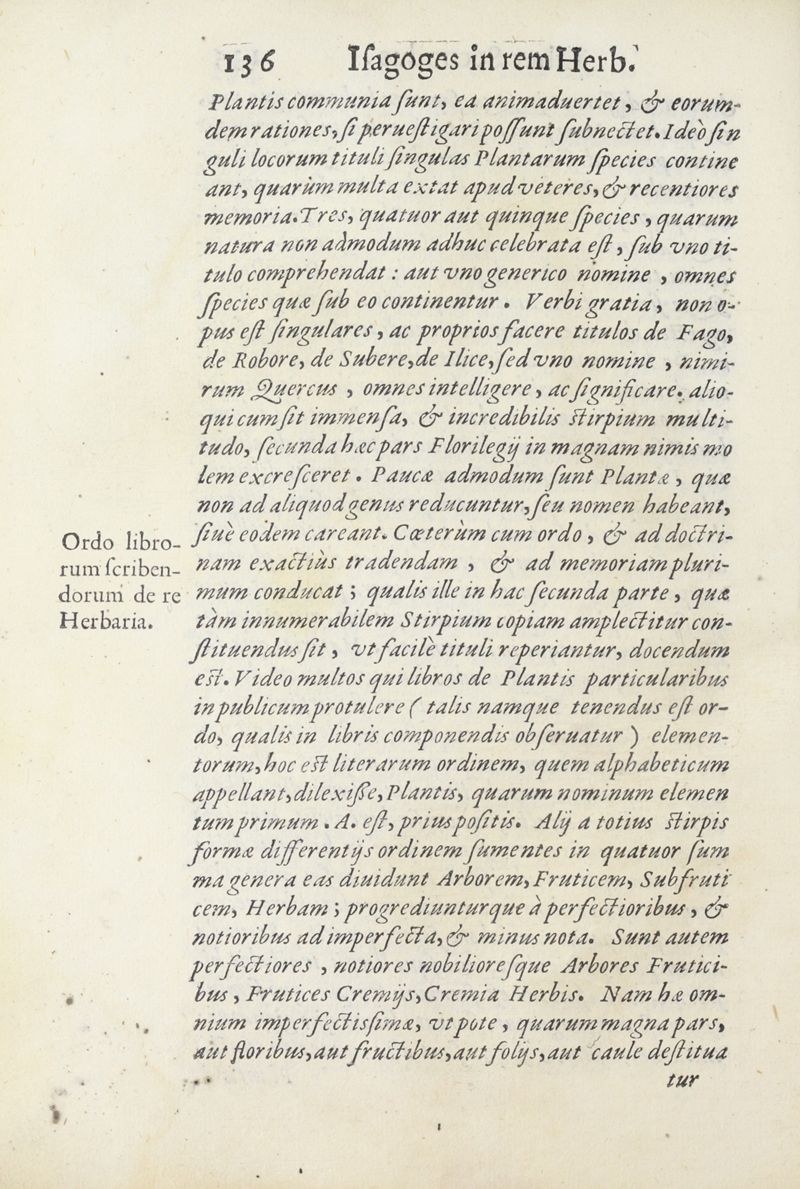 136 Iſagoges in rem Herb.
Plantis communia ſunt, ea animaduertet, & eorum-
dem rationes, ſi perueſtigari poſſunt ſubnectet. Ideò ſin
guli locorum tituli ſingulas Plantarum ſpecies contine
ant, quarùm multa extat apud veteres, & recentiores
memoria. Tres, quatuor aut quinque ſpecies, quarum
natura non admodum adhuc celebrata eſt, ſub vno ti-
tulo comprehendat: aut vno generico nomine, omnes
ſpecies quæ ſub eo continentur. Verbi gratia, non o-
pus eſt ſingulares, ac proprios facere titulos de Fago,
de Robore, de Subere, de Ilice, ſed vno nomine, nimi-
rum Quercus, omnes intelligere, ac ſignificare. alio-
qui cum ſit immenſa, & incredibilis ſtirpium multi-
tudo, ſecunda hæc pars Florilegij in magnam nimis mo
lem excreſceret. Paucæ admodum ſunt Plantæ, quæ
non ad aliquod genus reducuntur, ſeu nomen habeant,
ſiuè eodem careant. Cœterùm cum ordo, & ad doctri-
nam exactiùs tradendam, & ad memoriam pluri-
mum conducat; qualis ille in hac ſecunda parte, quæ
tàm innumerabilem Stirpium copiam amplectitur con-
ſtituendus ſit, vt facilè tituli reperiantur, docendum
eſt. Video multos qui libros de Plantis particularibus
in publicum protulere (talis namque tenendus eſt or-
do, qualis in libris componendis obſeruatur) elemen-
torum, hoc eſt literarum ordinem, quem alphabeticum
appellant, dilexiſſe, Plantis, quarum nominum elemen
tum primum. A. eſt, prius poſitis. Alij a totius ſtirpis
formæ differentijs ordinem ſumentes in quatuor ſum
ma genera eas diuidunt Arborem, Fruticem, Subfruti
cem, Herbam; progrediunturque à perfectioribus, &
notioribus ad imperfecta, & minus nota. Sunt autem
perfectiores, notiores nobilioreſque Arbores Frutici-
bus, Frutices Cremijs, Cremia Herbis. Nam hæ om-
nium imperfectiſſimæ, vtpote, quarum magna pars,
aut floribus, aut fructibus, aut folijs, aut caule deſtitua
tur
Ordo libro-
rum ſcriben-
dorum de re
Herbaria.